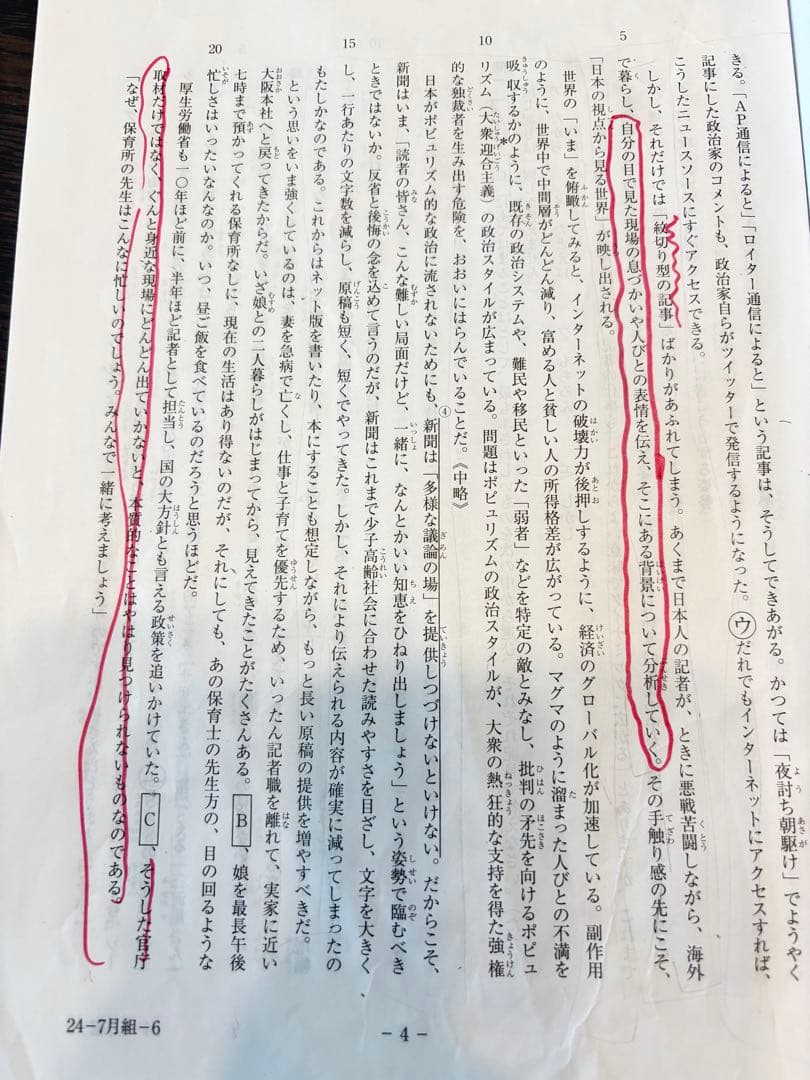 きる。「AP通信によると」「ロイター通信によると」という記事は、そうしてできあがる。かつては「夜討ち朝駆け」でようやく
記事にした政治家のコメントも、政治家自らがツイッターで発信するようになった。㋒だれでもインターネットにアクセスすれば、
こうしたニュースソースにすぐアクセスできる。
しかし、それだけでは「紋切り型の記事」ばかりがあふれてしまう。あくまで日本人の記者が、ときに悪戦苦闘しながら、海外
で暮らし、自分の目で見た現場の息づかいや人びとの表情を伝え、そこにある背景について分析していく。その手触り感の先にこそ、
「日本の視点から見る世界」が映し出される。
世界の「いま」を俯瞰してみると、インターネットの破壊力が後押しするように、経済のグローバル化が加速している。副作用
のように、世界中で中間層がどんどん減り、富める人と貧しい人の所得格差が広がっている。マグマのように溜まった人びとの不満を
吸収するかのように、既存の政治システムや、難民や移民といった「弱者」などを特定の敵とみなし、批判の矛先を向けるポピュ
リズム（大衆迎合主義）*の政治スタイルが広まっている。問題はポピュリズムの政治スタイルが、大衆の熱狂的な支持を得た強権
的な独裁者を生み出す危険を、おおいにはらんでいることだ。《中略》
日本がポピュリズム的な政治に流されないためにも、④新聞は「多様な議論の場」を提供しつづけないといけない。だからこそ、
新聞はいま、「読者の皆さん、こんな難しい局面だけど、一緒に、なんとかいい知恵をひねり出しましょう」という姿勢で臨むべき
ときではないか。反省と後悔の念を込めて言うのだが、新聞はこれまで少子高齢社会に合わせた読みやすさを目ざし、文字を大きく
し、一行あたりの文字数を減らし、原稿も短く、短くでやってきた。しかし、それにより伝えられる内容が確実に減ってしまったの
もたしかなのである。これからはネット版を書いたり、本にすることも想定しながら、もっと長い原稿の提供を増やすべきだ。
という思いをいま強くしているのは、妻を急病で亡くし、仕事と子育てを優先するため、いったん記者職を離れて、実家に近い
大阪本社へと戻ってきたからだ。いざ娘との二人暮らしがはじまってから、見えてきたことがたくさんある。B、娘を最長午後
七時まで預かってくれる保育所なしに、現在の生活はあり得ないのだが、それにしても、あの保育士の先生方の、目の回るような
忙しさはいったいなんなのか。いつ、昼ご飯を食べているのだろうと思うほどだ。
厚生労働省も一〇年ほど前に、半年ほど記者として担当し、国の大方針とも言える政策を追いかけていた。C、そうした官庁
取材だけではなく、ぐんと身近な現場にどんどん出ていかないと、本質的なことはやはり見つけられないものなのである。
「なぜ、保育所の先生はこんなに忙しいのでしょう。みんなで一緒に考えましょう」
5
10
15
20
－4－
24－7月組－6